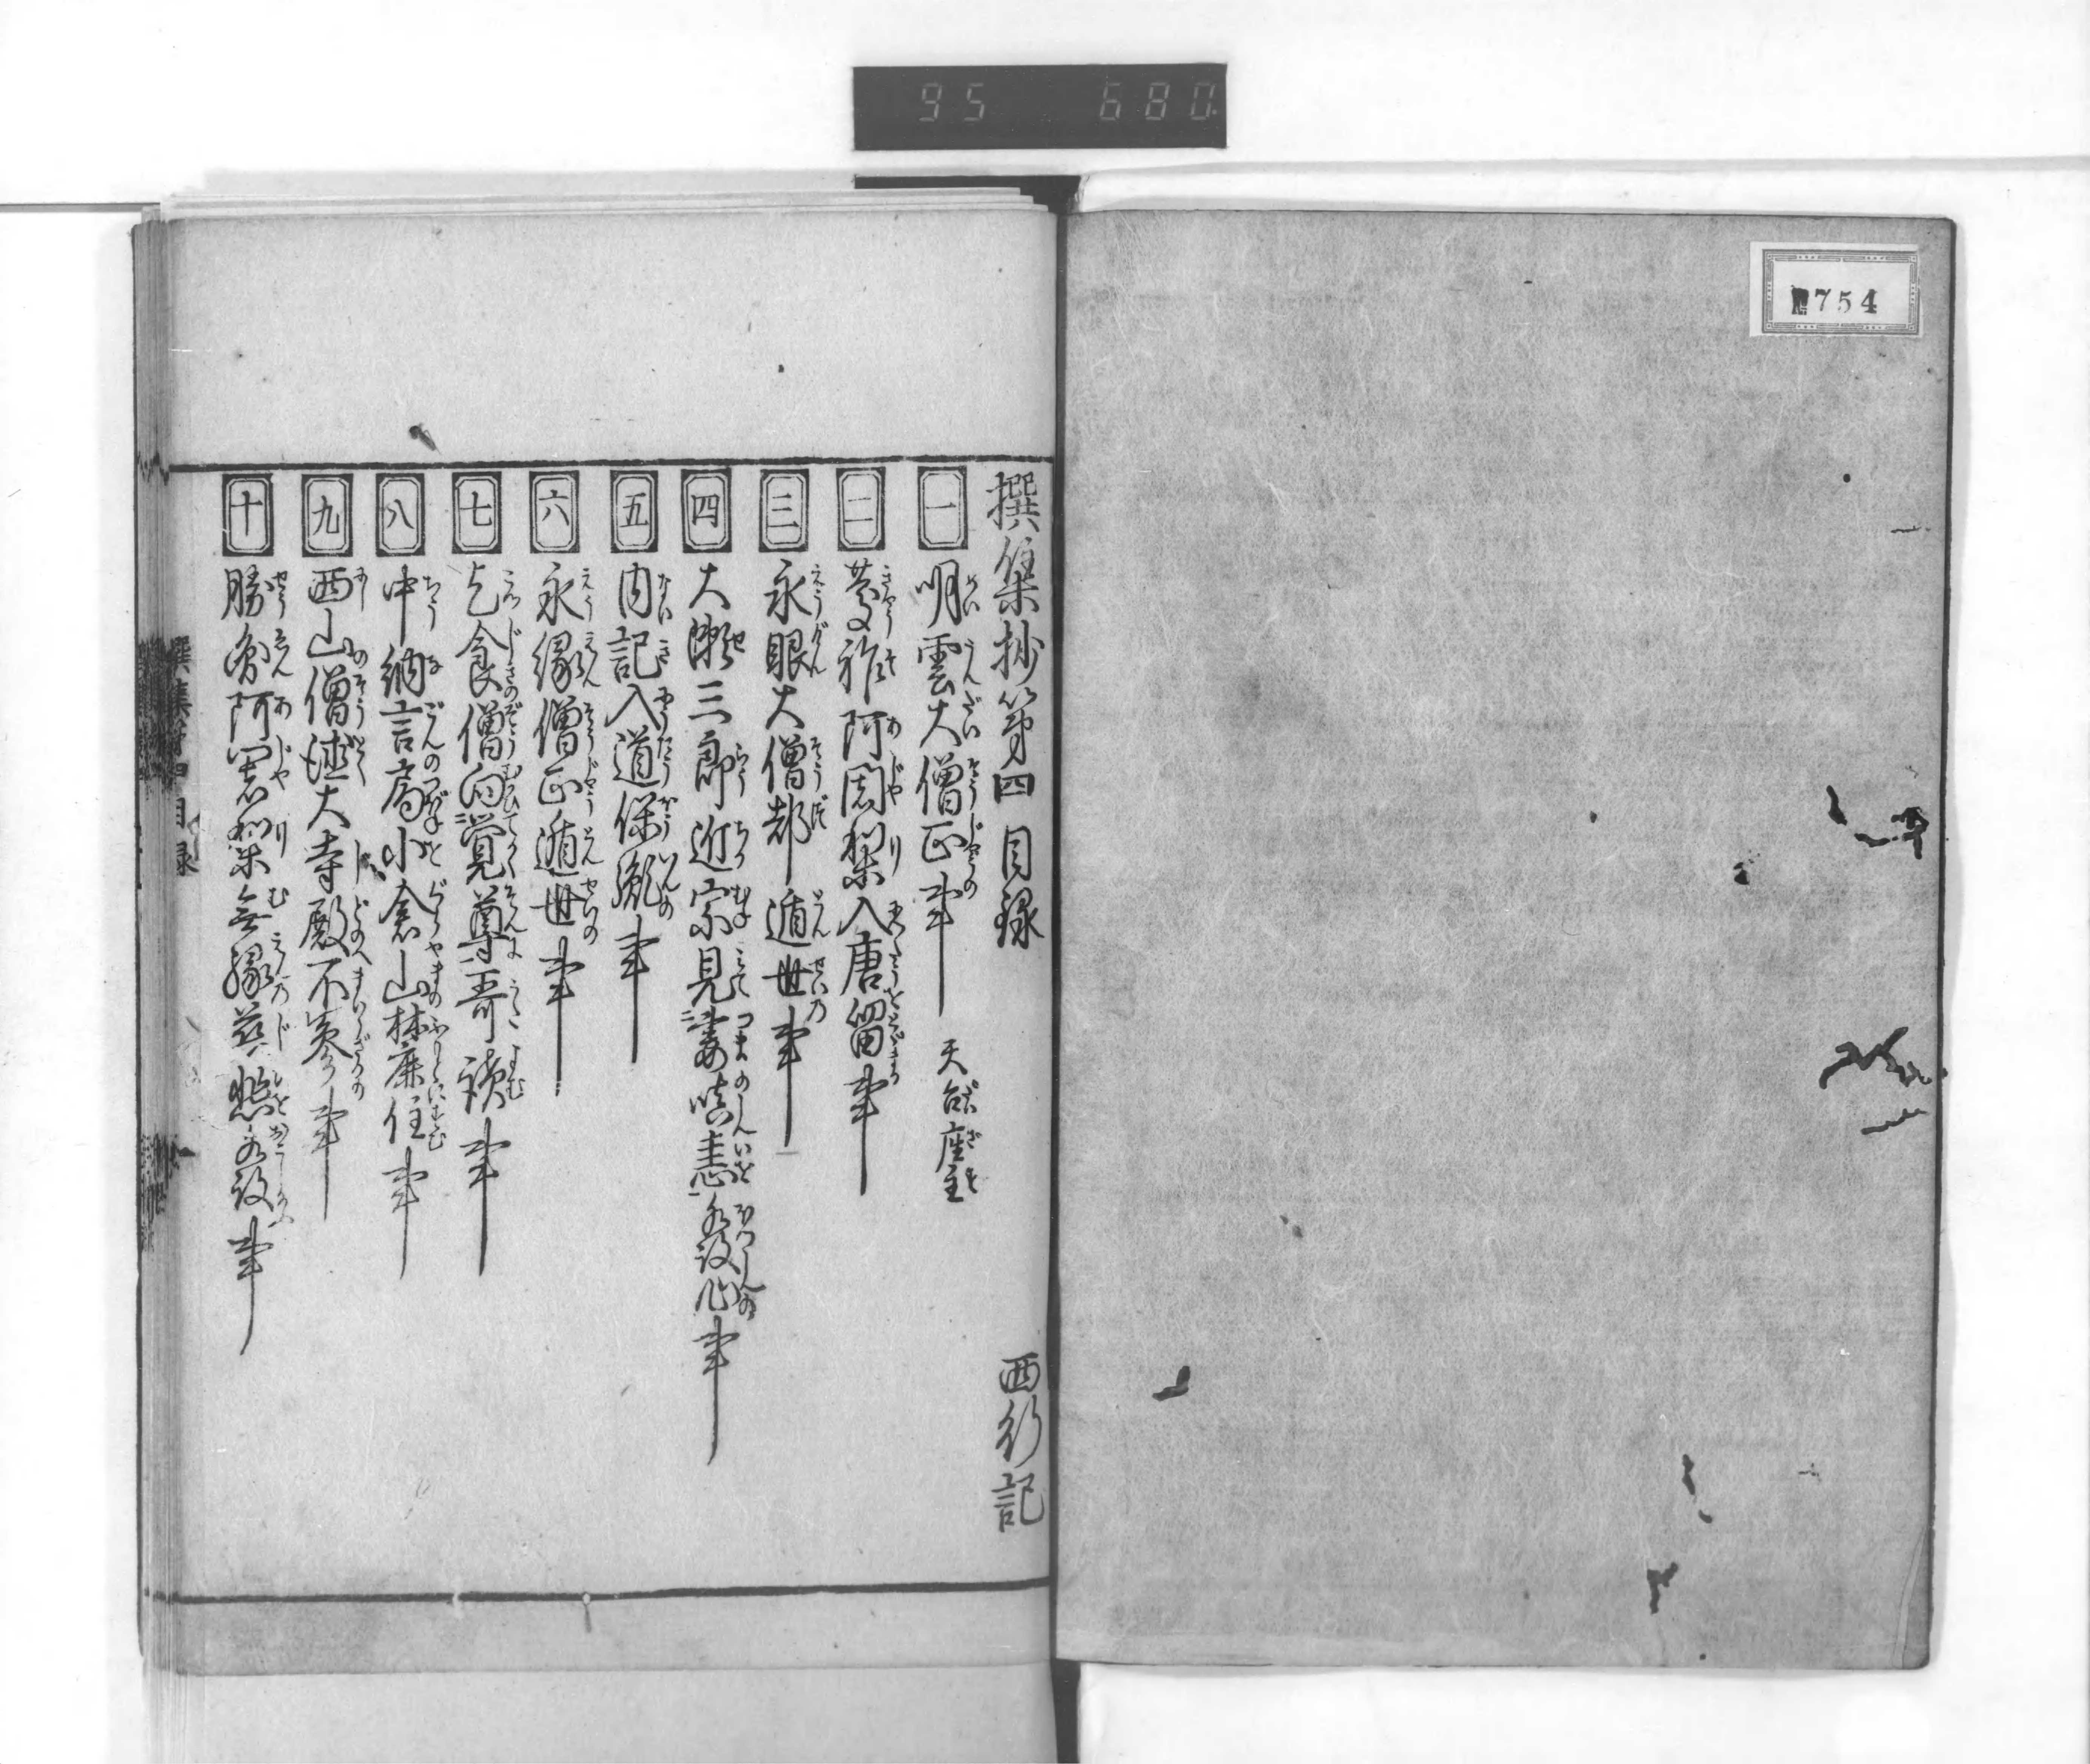 95 680
754
撰集抄第四 目録 西行記
一 明雲大僧正事 天台座主
二 慶祚阿闍梨入唐留事
三 永眼大僧都遁世事
四 大隅三郎近宗見妻嗔恚発心事
五 内記入道保胤事
六 永縁僧正遁世事
七 乞食僧向覚尊哥読事
八 中納言局小倉山林麻住事
九 西山僧徳大寺殿不参事
十 勝 阿闍梨無縁慈悲 事
撰集抄四目録